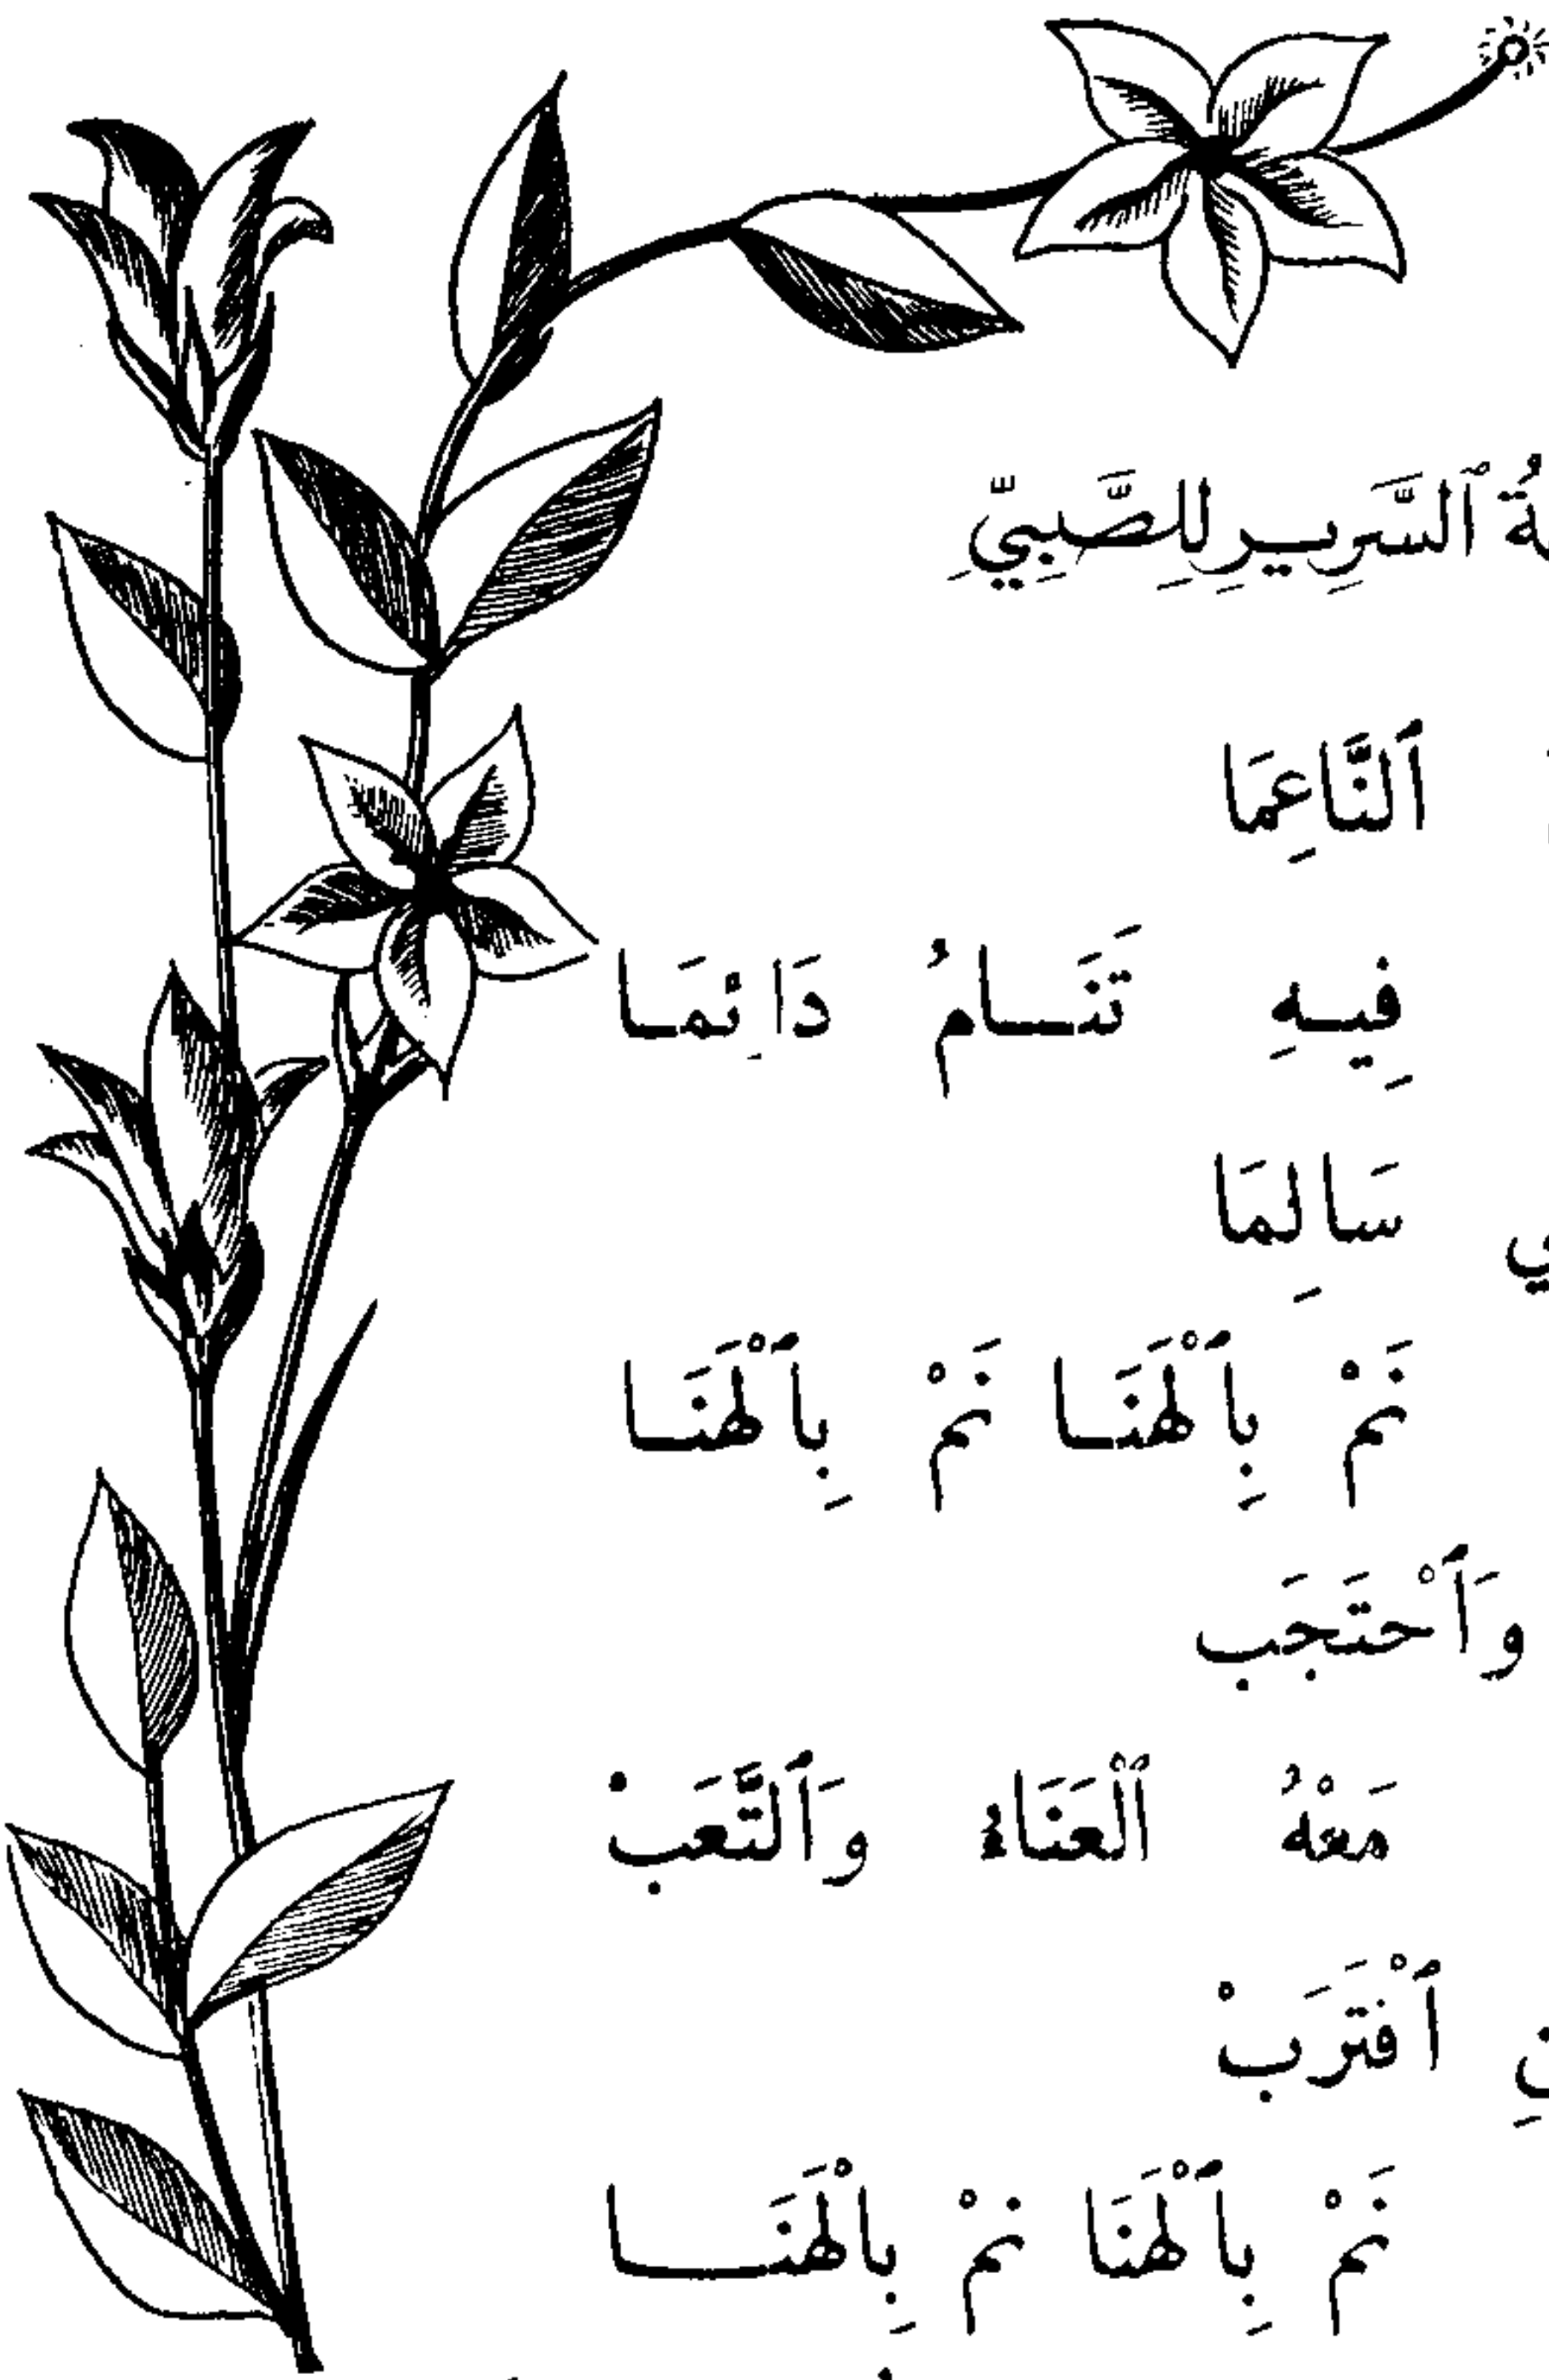 ٱلسَّرِيرِ لِلصَّبِيِّ
ٱلنَّاعِمَا
فِيهِ تَنَامُ دَائِمَا
سَالِمَا
نَمْ بِٱلْهَنَا نَمْ بِٱلْهَنَا
وَٱحْتَجَب
مَعْهُ ٱلْعَنَاءُ وَٱلتَّعَبْ
ٱقْتَرَبْ
نَمْ بِٱلْهَنَا نَمْ بِالْهَنَا